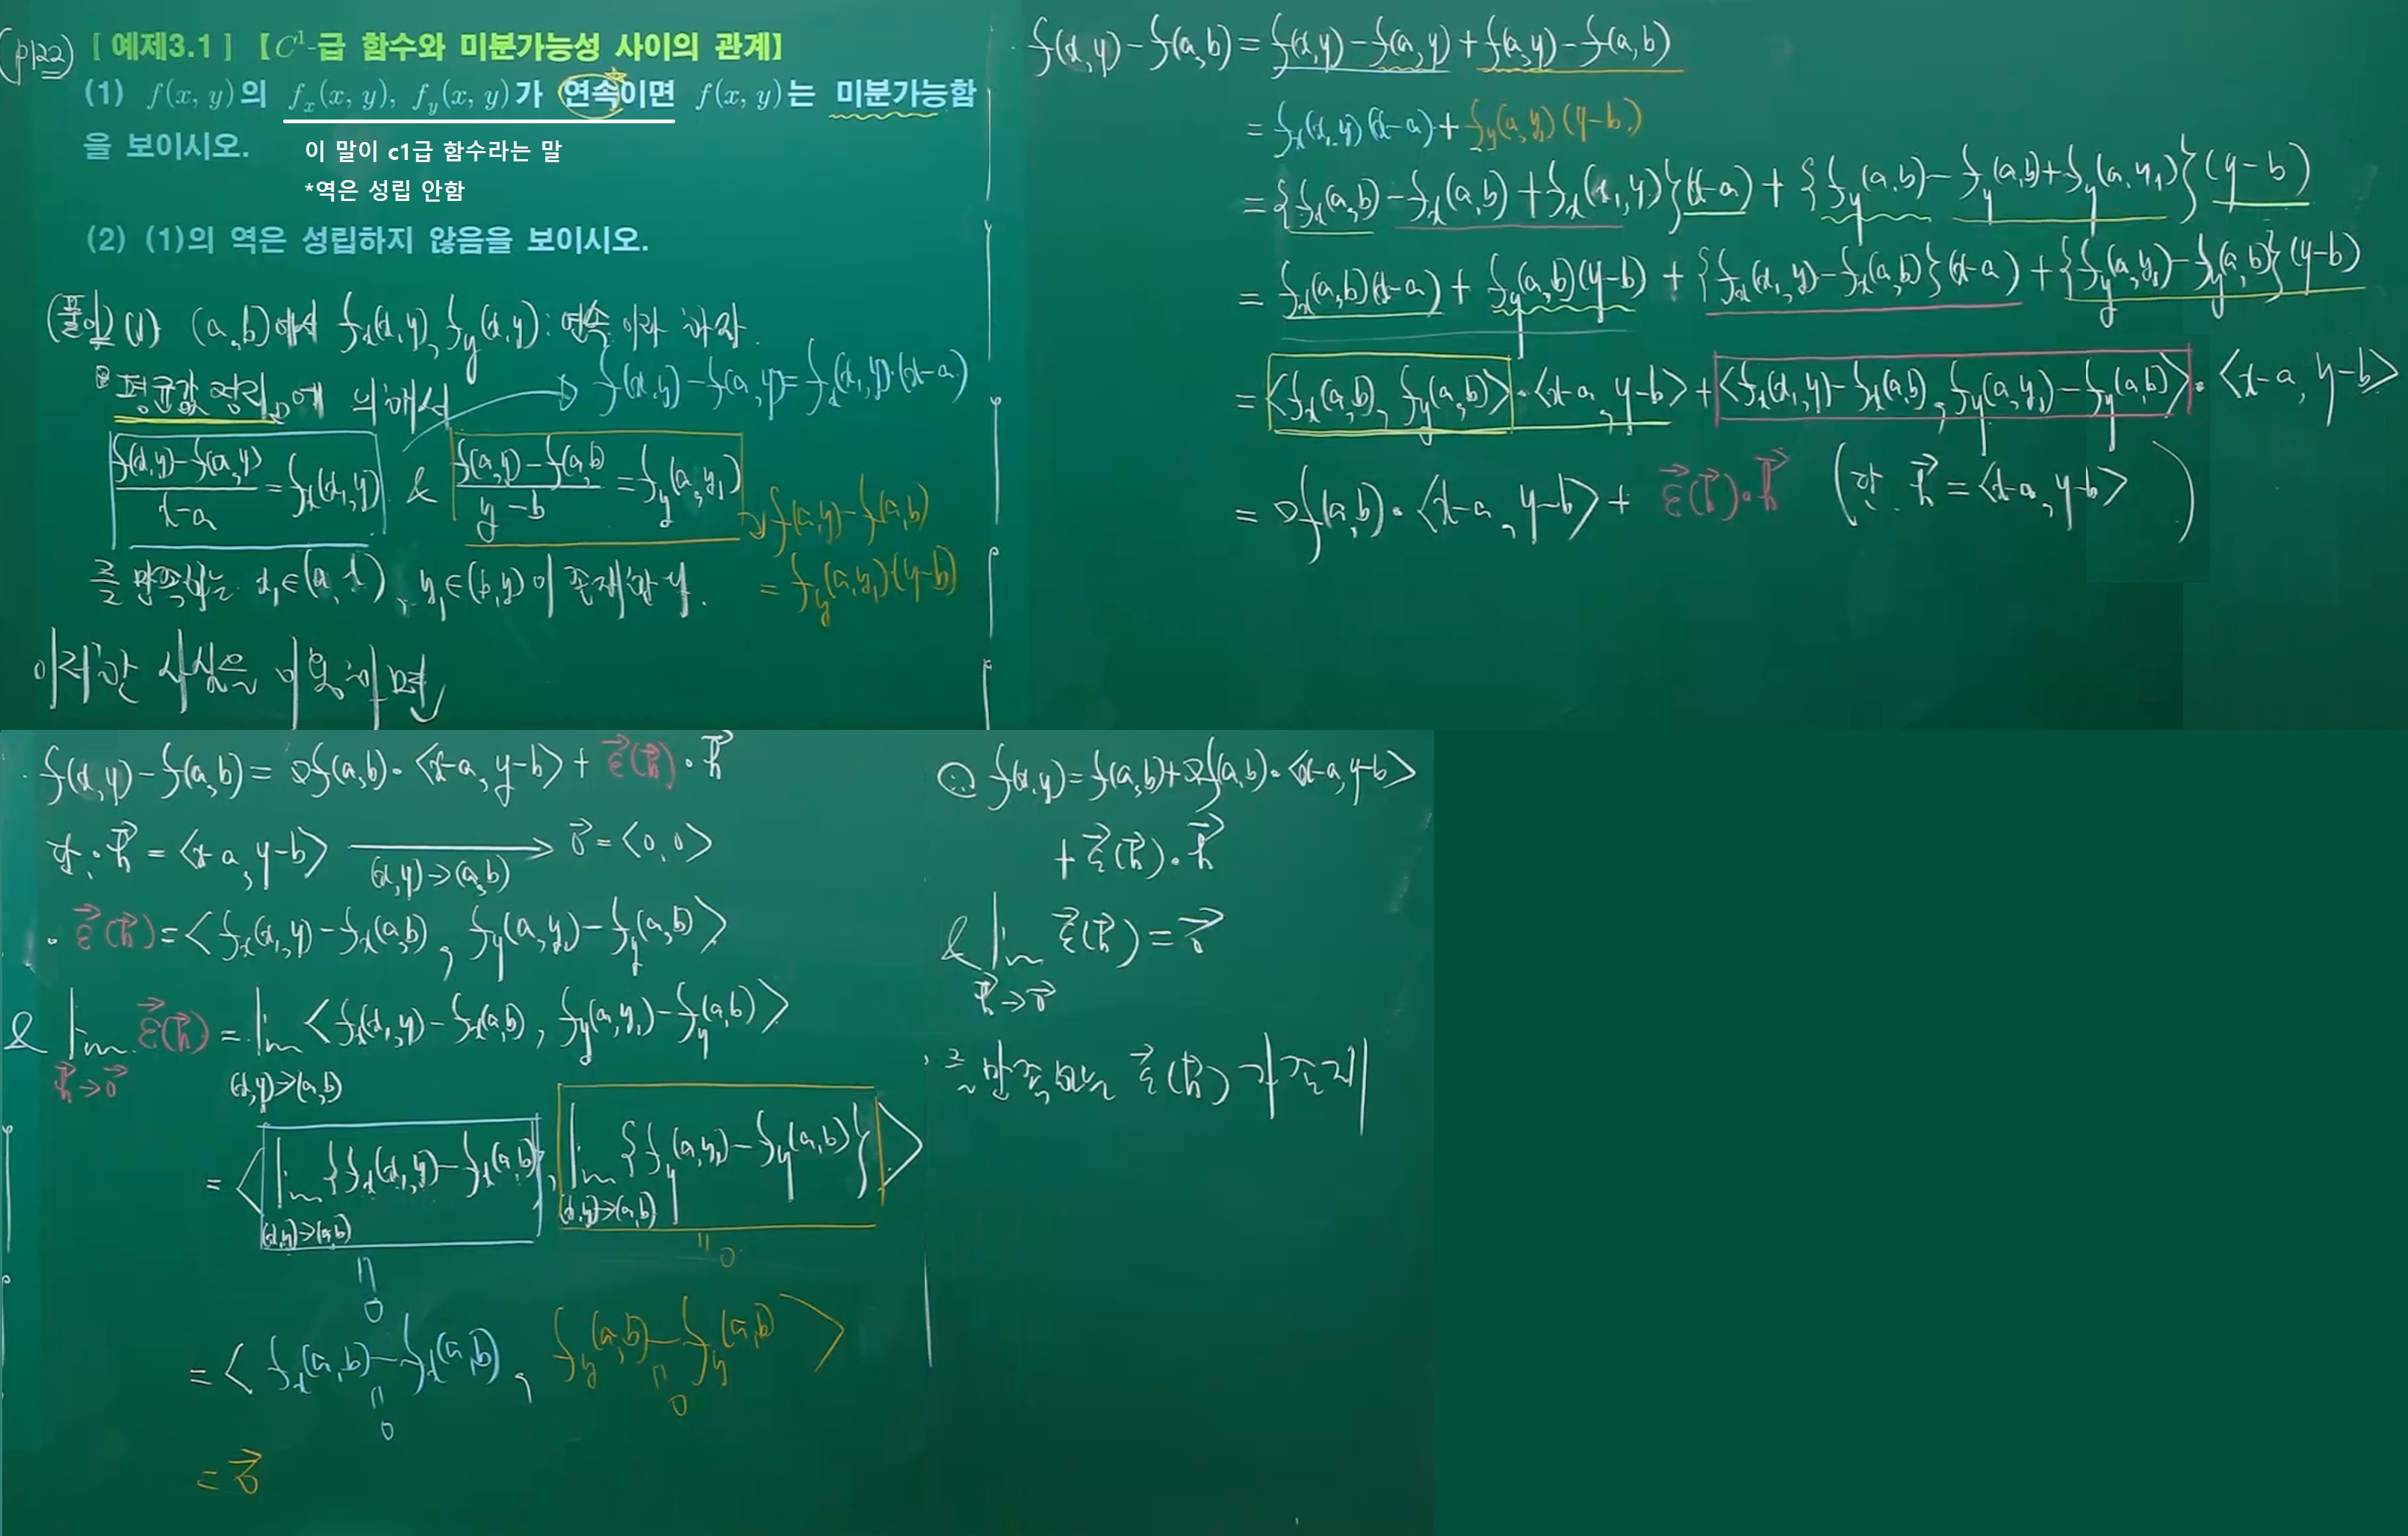 (p122) [ 예제3.1 ] 【 C¹-급 함수와 미분가능성 사이의 관계】
(1) f(x, y)의 f_x(x, y), f_y(x, y)가 연속이면 f(x, y)는 미분가능함
을 보이시오.
이 말이 c1급 함수라는 말
*역은 성립 안함
(2) (1)의 역은 성립하지 않음을 보이시오.
(풀이) (1) (a, b)에서 f_x(x, y), f_y(x, y): 연속 이라 하자.
평균값 정리에 의해서
f(x, y) - f(a, y) = f_x(x₁, y)·(x-a)
(f(x, y) - f(a, y))/(x-a) = f_x(x₁, y) & (f(a, y) - f(a, b))/(y-b) = f_y(a, y₁)
f(a, y) - f(a, b)
= f_y(a, y₁)(y-b)
를 만족하는 x₁∈(a, x), y₁∈(b, y)이 존재한다.
이러한 사실을 이용하면
f(x, y) - f(a, b) = f(x, y) - f(a, y) + f(a, y) - f(a, b)
= f_x(x₁, y)(x-a) + f_y(a, y₁)(y-b)
= {f_x(a, b) - f_x(a, b) + f_x(x₁, y)}(x-a) + {f_y(a, b) - f_y(a, b) + f_y(a, y₁)}(y-b)
= f_x(a, b)(x-a) + f_y(a, b)(y-b) + {f_x(x₁, y) - f_x(a, b)}(x-a) + {f_y(a, y₁) - f_y(a, b)}(y-b)
= <f_x(a, b), f_y(a, b)>·<x-a, y-b> + <f_x(x₁, y) - f_x(a, b), f_y(a, y₁) - f_y(a, b)>·<x-a, y-b>
= ∇f(a, b)·<x-a, y-b> + ε⃗(h⃗)·h⃗ (단, h⃗ = <x-a, y-b>)
· f(x, y) - f(a, b) = ∇f(a, b)·<x-a, y-b> + ε⃗(h⃗)·h⃗
단, h⃗ = <x-a, y-b> ⟶ 0⃗ = <0, 0>
(x, y)→(a, b)
· ε⃗(h⃗) = <f_x(x₁, y) - f_x(a, b), f_y(a, y₁) - f_y(a, b)>
& lim ε⃗(h⃗) = lim <f_x(x₁, y) - f_x(a, b), f_y(a, y₁) - f_y(a, b)>
h⃗→0⃗ (x, y)→(a, b)
= <lim {f_x(x₁, y) - f_x(a, b)}, lim {f_y(a, y₁) - f_y(a, b)}>
(x, y)→(a, b) (x, y)→(a, b)
= 0 = 0
= <f_x(a, b) - f_x(a, b), f_y(a, b) - f_y(a, b)>
= 0 = 0
= 0⃗
∴ f(x, y) = f(a, b) + ∇f(a, b)·<x-a, y-b>
+ ε⃗(h⃗)·h⃗
& lim ε⃗(h⃗) = 0⃗
h⃗→0⃗
를 만족하는 ε⃗(h⃗)가 존재